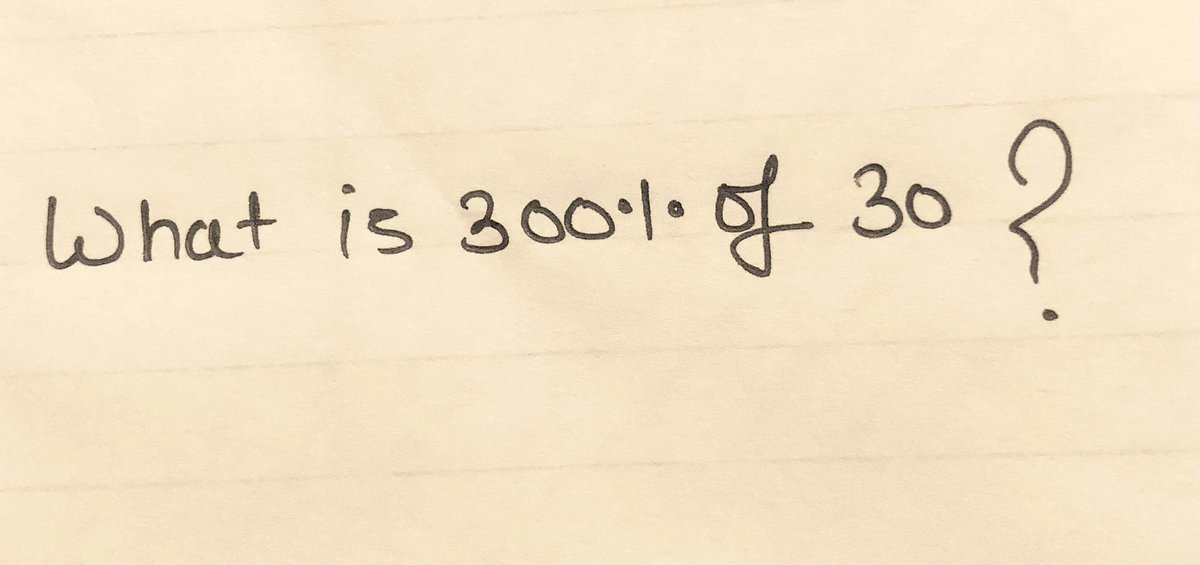 What is 300% of 30 ?